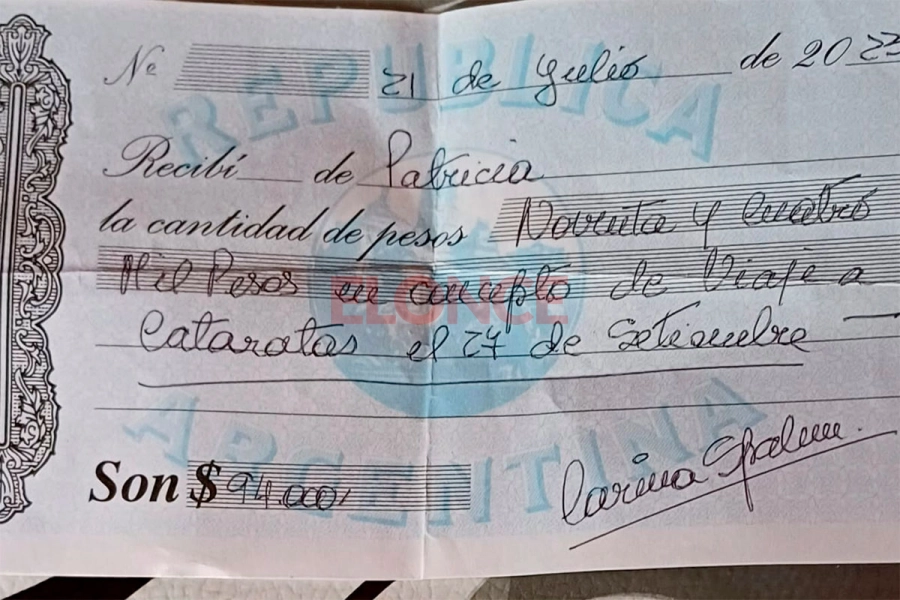 No 21 de Julio de 2023
REPUBLICA
Recibí de Patricia
la cantidad de pesos Noventa y Cuatro
Mil Pesos en concepto de Viaje a
ELONCE
Cataratas el 27 de Setiembre
ARGENTINA
Son $ 94.000
Carina